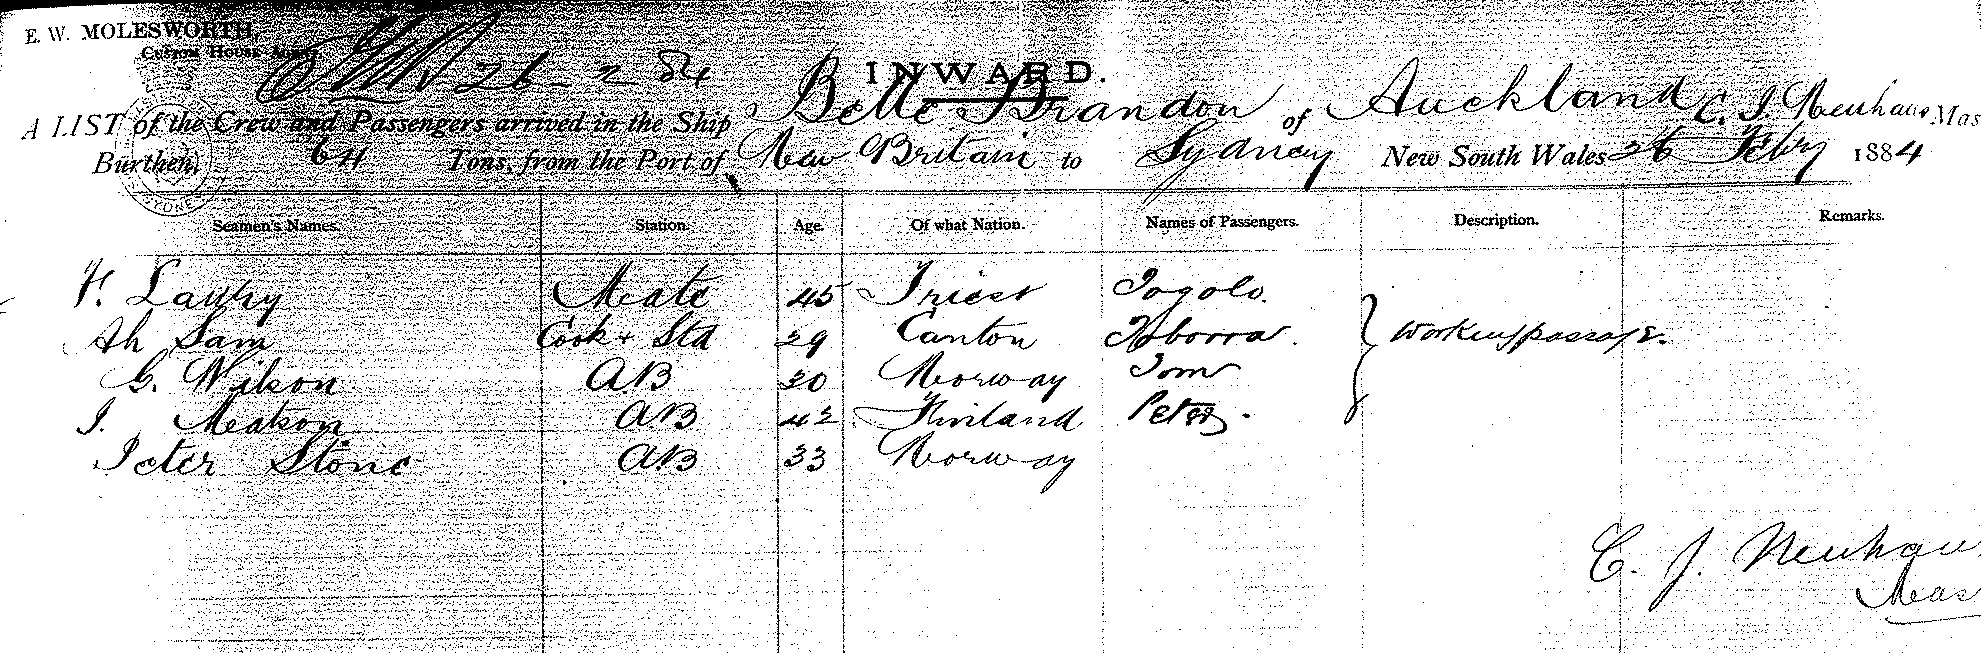 E. W. MOLESWORTH,
Custom House Agent
26 2 84
INWARD.
A LIST of the Crew and Passengers arrived in the Ship Belle Brandon of Auckland C. J. Neuhaus, Mas
Burthen, 64 Tons, from the Port of New Britain to Sydney New South Wales 26 Febry 1884
Seamen's Names. Station. Age. Of what Nation. Names of Passengers. Description. Remarks.
Mate 45 Triest Togolo.
Ah Sam Cook & Std 29 Canton Toborra. working passage.
C. Wilson AB 30 Norway Tom
J. Matson AB 42 Finland Peter.
Peter Stone AB 33 Norway
C. J. Neuhau
Mas